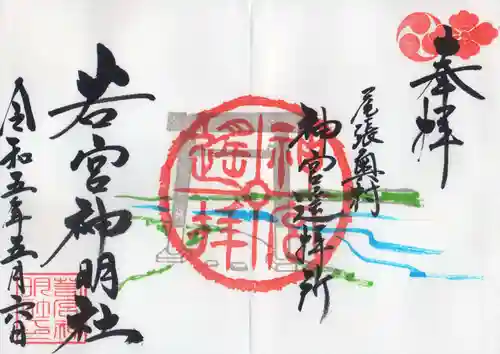 奉拝
尾張奥村
神宮遥拝所
神宮
遥拝
若宮神明社
令和五年五月六日